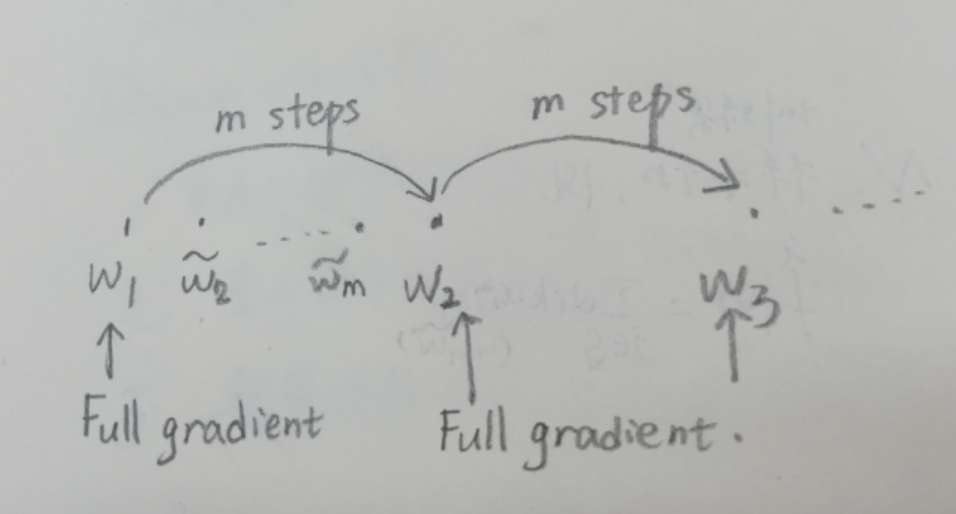 m steps m steps
w₁ w̃₂ ------ w̃ₘ w₂ w₃ -----
Full gradient Full gradient.